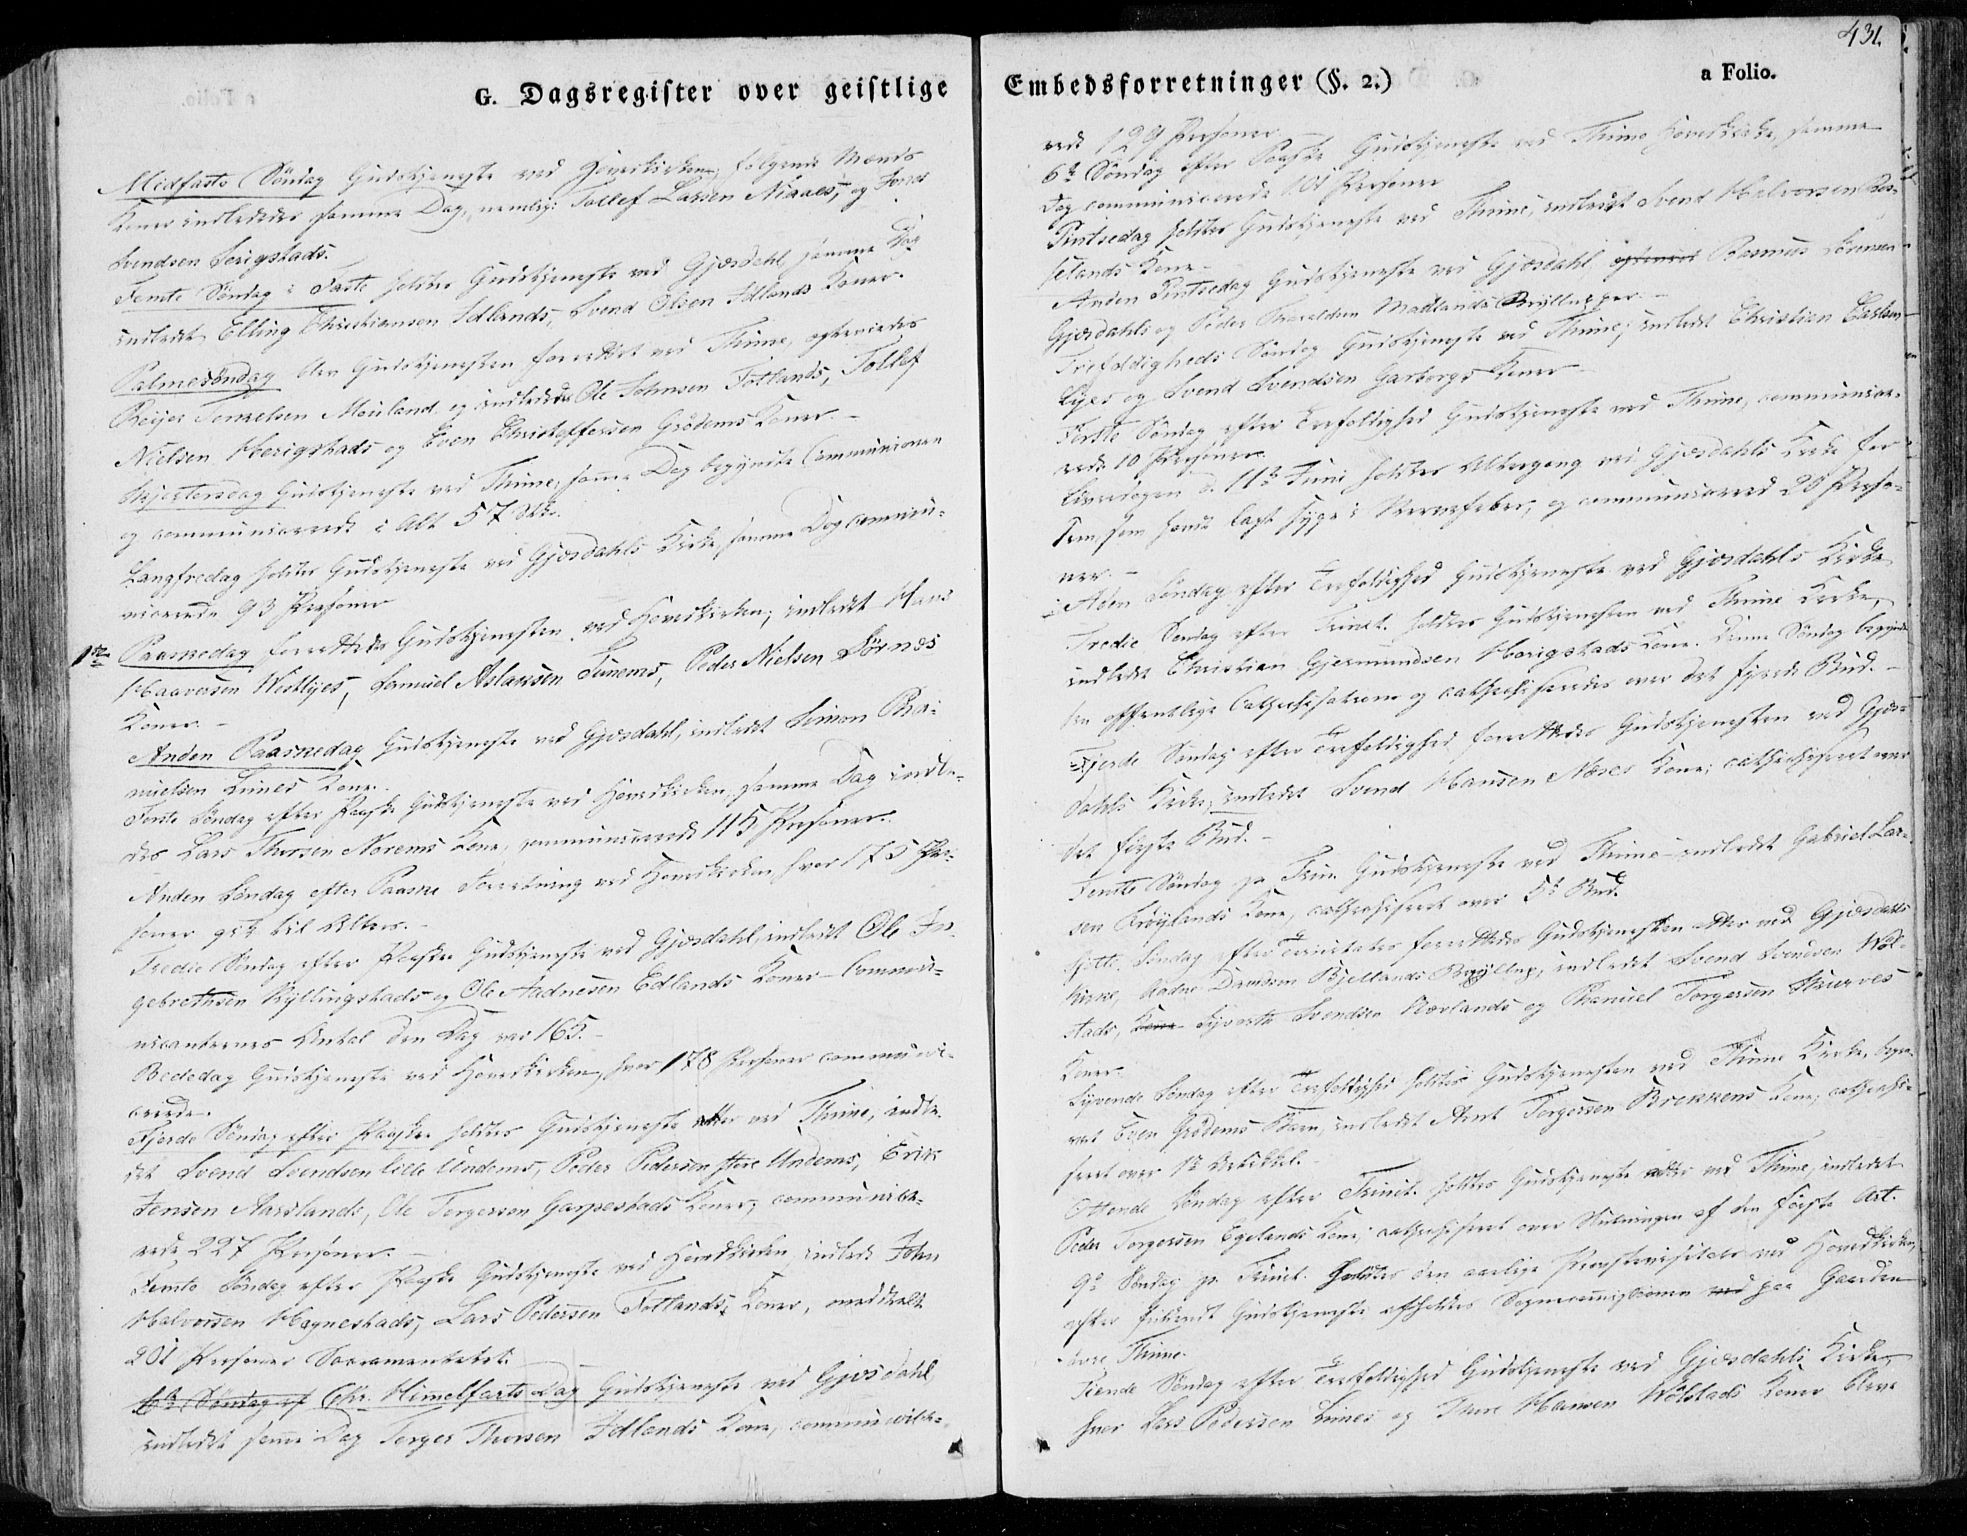 G. Dagsregister over geistlige
Midfasts Søndag Gudstjeneste ved Hovedkirken, følgende Mænds
Koner indlededes samme Dag, nemlig: Tollef Larsen Niaaes, og Jonas
Svendsen Serigstads.
Femte Søndag i Faste holdtes Gudstjeneste ved Gjæsdahl samme Dag
indledet Elling Christiansen Idlands, Svend Olsen Idlands Koner.
Palmesøndag blev Gudstjenesten forrettet ved Thime,
Reijer Tenrelsen Mauland og indledede Ole Johnsen Fotlands, Tollef
Nielsen Herigstads og Even Christoffersen Grødems Koner. -
Skjertorsdag Gudstjeneste ved Thime, samme Dag begyndte Communionen
og communicerede i Alt 57
Langfredag holdtes Gudstjeneste ved Gjæsdahls Kirke samme Dag commu-
nicerede 93 Personer
1ste Paaskedag forrettedes Gudstjenesten ved Hovedkirken; indledet Hans
Haaversen Westlyes, Samuel Aslaksen Tunems, Peder Nielsen Sørnes
Koner. -
Anden Paaskedag Gudstjeneste ved Gjæsdahl, indledet Simon Tha-
nuelsen Limes Kone.
Første Søndag efter Paaske Gudstjeneste ved Hovedkirken, samme Dag indle-
des Lars Thorsen Norems Kone, communicerede 115 Personer.
Anden Søndag efter Paaske Forretning ved Hovedkirken hvor 175 Per-
soner gik til Alters. -
Tredie Søndag efter Paaske Gudstjeneste ved Gjæsdahl, indledet Ole In-
gebrethsen Kyllingstads og Ole Aadnesen Edlands Koner - Commu-
nicanternes Antal den Dag var 165. -
Bededag Gudstjeneste ved Hovedkirken, hvor 178 Personer communi-
cerede.
Fjerde Søndag efter Paaske holdtes Gudstjeneste atter ved Thime, indle-
det Svend Svendsen lille Undems, Peder Pedersen store Undems, Erik
Jensen Aarslands, Ole Torgersen Garpestads Koner; communice-
rede 227 Personer. -
Femte Søndag efter Paaske Gudstjeneste ved Hovedkirken, indledet John
Halvorsen Hognestads, Lars Pedersen Fotlands Koner, meddeelt
201 Personer Sacramentet.
6te Søndag ef Chr. Himelfarts Dag Gudstjeneste ved Gjæsdahl
indledet samme Dag Torger Thorsen Idlands Kone, communice-
431.
Embedsforretninger (§. 2.)
a Folio.
rede 129 Personer
6te Søndag efter Paaske Gudstjeneste ved Thime Hovedkirke, samme
Dag communicerede 101 Personer
Pintsedag holdtes Gudstjeneste ved Thime, indledet Svend Halvorsen Ros-
selands Kone -
Anden Pintsedag Gudstjeneste ved Gjæsdahl Rasmus Sörensen
Gjæsdahls og Peder Tharaldsen Madlands Bryllupper. -
Trefoldigheds Søndag Gudstjeneste ved Thime; indledet Christian Carlsen
Lyes og Svend Svendsen Garborgs Koner
Første Søndag efter Trefoldighed Gudstjeneste ved Thime, communice-
rede 10 Personer.
Løverdagen d. 11te Juni holdtes Altergang ved Gjæsdahls Kirke for
Dem som havde lagt syge i Nervefeber, og communicerede 20 Perso-
ner. -
Aden Søndag efter Trefoldighed Gudstjeneste ved Gjæsdahls Kirke
Tredie Søndag efter Trinit. holdtes Gudstjenesten ved Thime Kirke,
indledet Christian Gjermundsen Horigstads Kone. Denne Søndag begyndte
den offentlige Catechisation og catechiseredes over det fjerde Bud. -
Fjerde Søndag efter Trefoldighed forrettedes Gudstjenesten ved Gjæs-
dahls Kirke, indledet Svend Hansen Næses Kone; catechiseret over
det første Bud. -
Femte Søndag p. Trin. Gudstjeneste ved Thime - indledet Gabriel Lar-
sen Frøylands Kone, catechiseret over 5te Bud.
Sjette Søndag efter Trinitatis forrettedes Gudstjenesten atter ved Gjæsdahls
Kirke, Aadne Davidsen Bjellands Bryllup, indledet Svend Svendsen Wøl-
stads, Kone Syvert Svendsen Nærlands og Thanuel Torgersen
Koner.
Syvende Søndag efter Trefoldighed holdtes Gudstjenesten ved Thime Kirke, begra-
vet Even Grødems Barn, indledet Arnt Torgersen Brekkens Kone, catechi-
seret over 1te Artikkel. -
Ottende Søndag efter Trinit. holdtes Gudstjeneste atter ved Thime, indledet
Peder Torgersen Egelands Kone, catechiseret over Slutningen af den første Art.
9de Søndag p. Trinit. holdtes den aarlige Provstevisitats ved Hovedkirken,
efter Gudstjeneste afholdtes Sognecommissionen ved paa Gaarden
øvre Thime.
Tiende Søndag efter Trefoldighed Gudstjeneste ved Gjæsdahls Kirke,
hvor Lars Pedersen Limes og Thore Hansen Wølstads Koner bleve